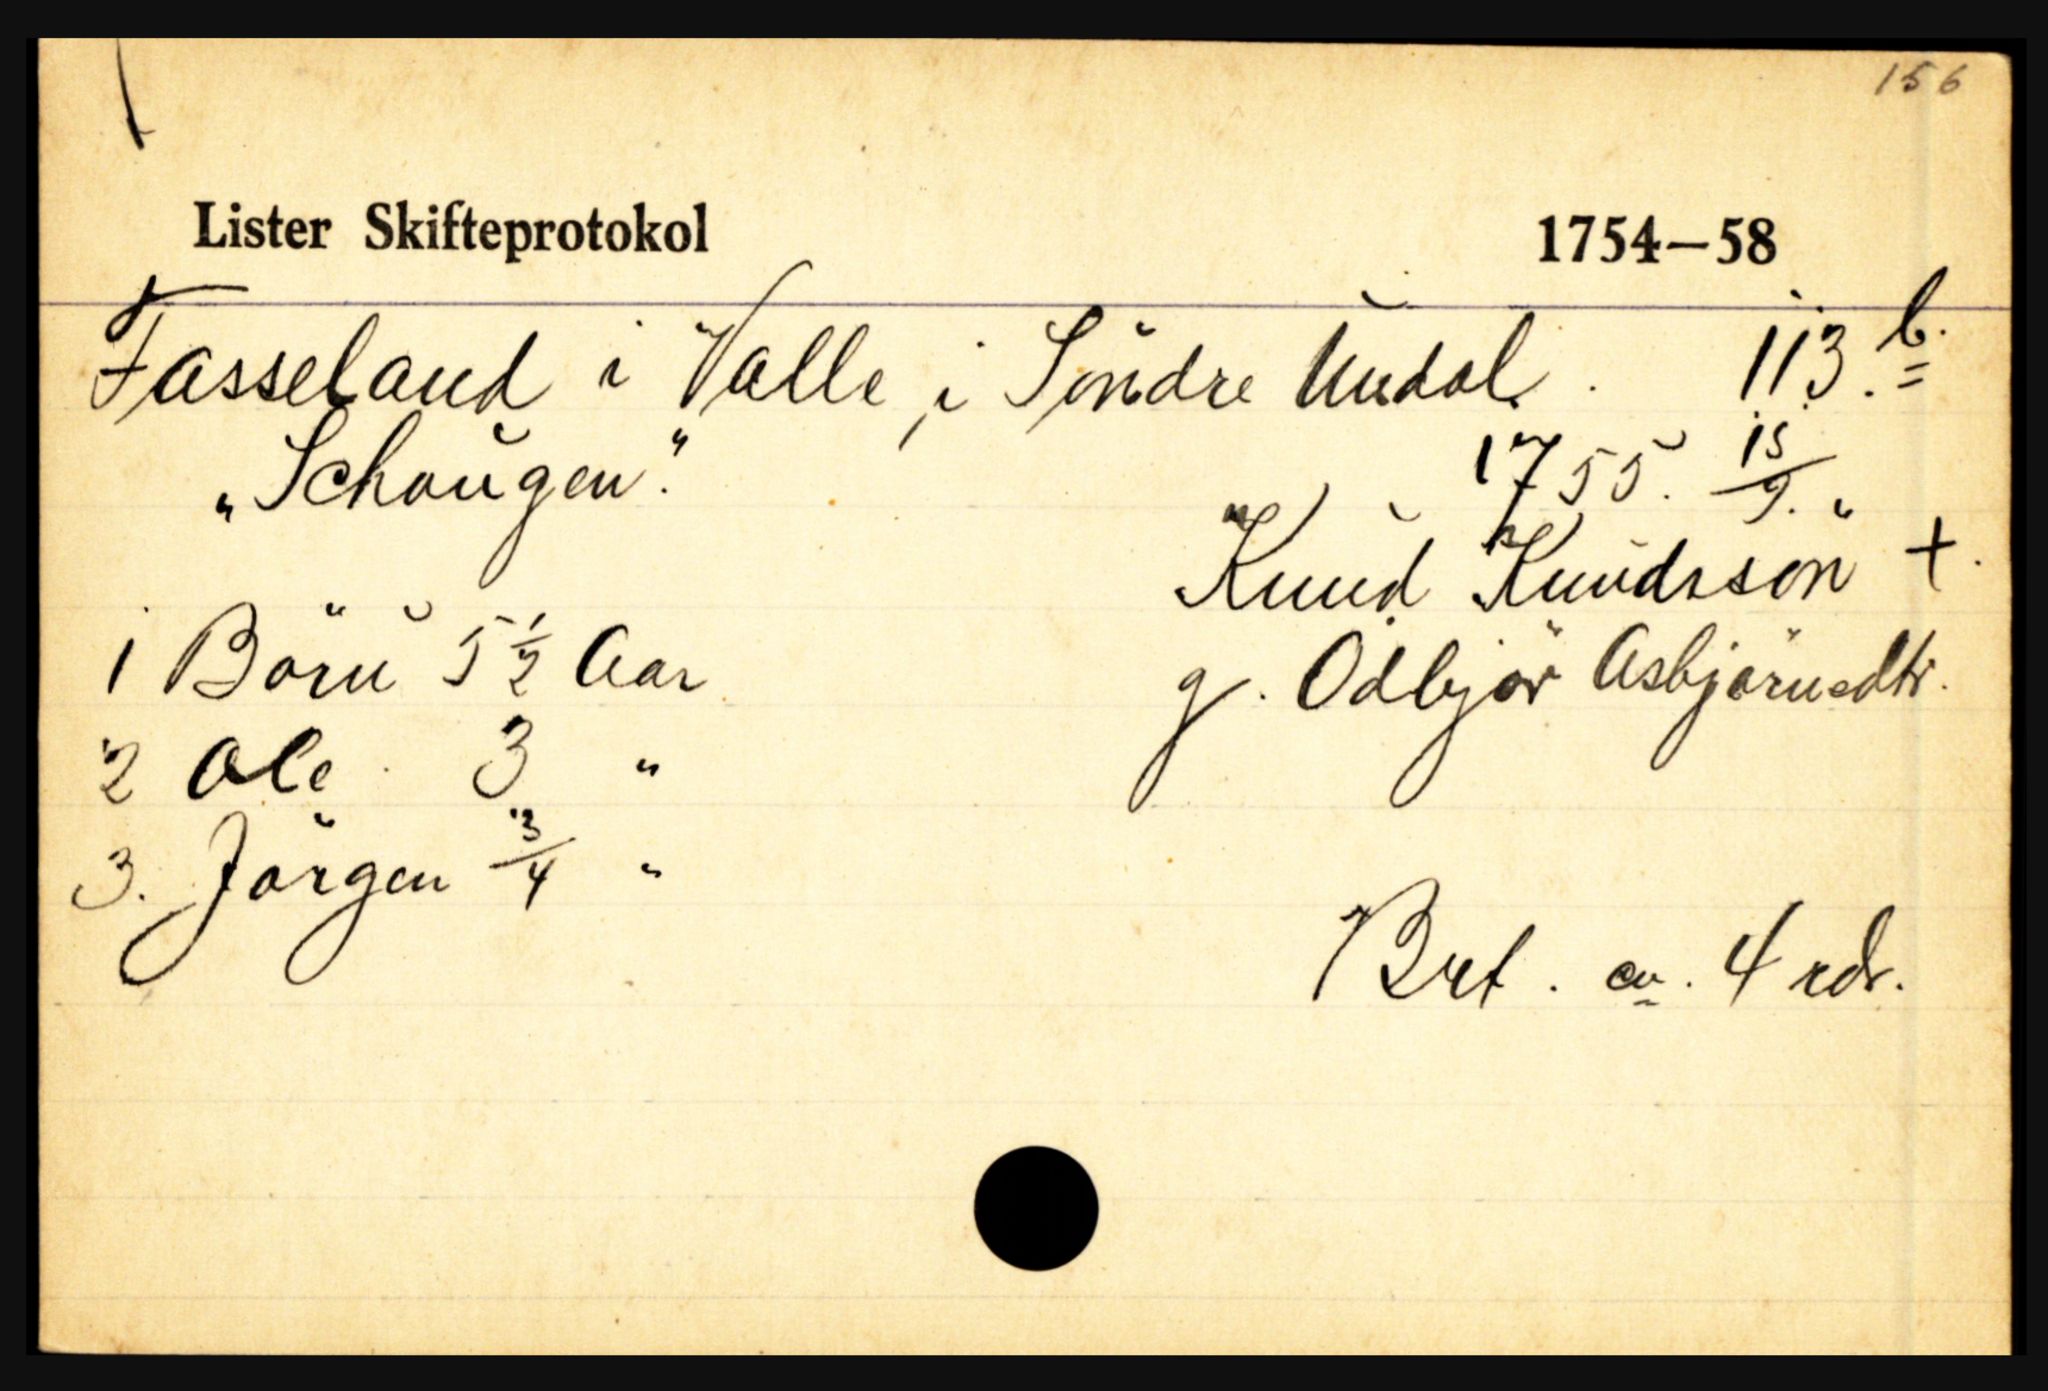 156
Lister Skifteprotokol 1754—58
Fasseland i Valle, i Söndre Undal. 113. b.
„Schougen." 1755. 15/9.
Knud Knudssön +.
1 Börü 5 1/2 Aar g. Odbjör Asbjörnsdtr.
2 Ole. 3 "
3. Jörgen 3/4 "
Brt. ca. 4 rdr.